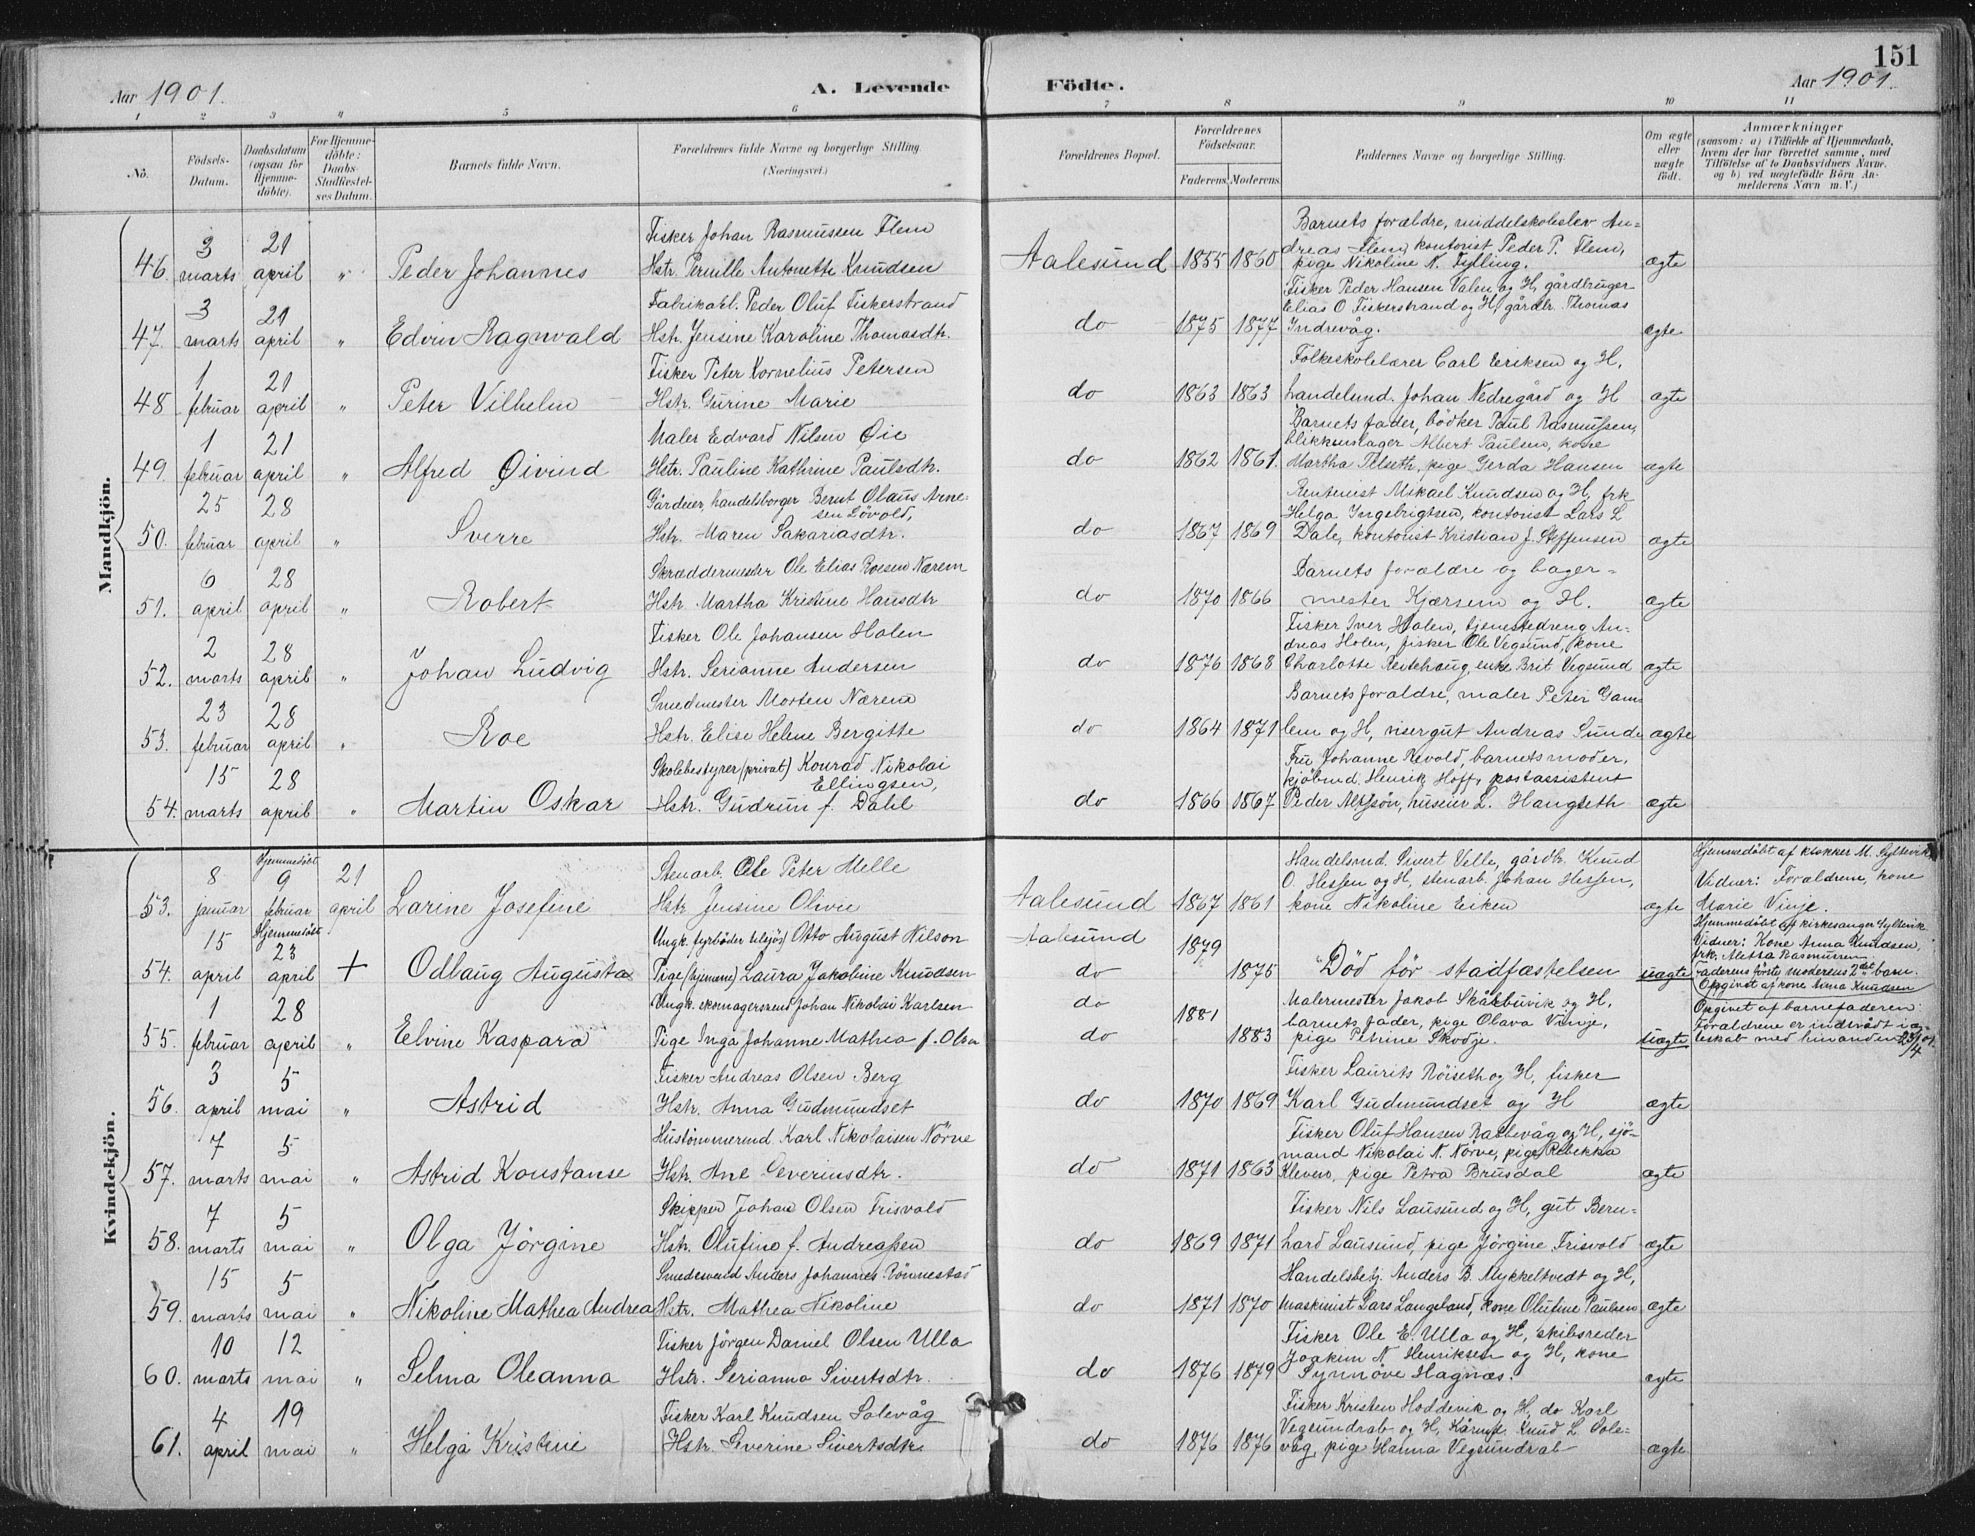 151
Aar 1901.
A. Levende
Födte.
Aar 1901.
1
2
3
4
5
6
7
8
9
10
11
No.
Födsels-Datum.
Daabsdatum (ogsaa for Hjemme-döbte).
For Hjemme-döbte: Daabs-Stadfæstel-ses Datum.
Barnets fulde Navn.
Forældrenes fulde Navne og borgerlige Stilling. (Næringsvei.)
Forældrenes Bopæl.
Forældrenes Födselsaar.
Faderens.
Moderens.
Faddernes Navne og borgerlige Stilling.
Om ægte eller uægte födt.
Anmærkninger
(saasom: a) i Tilfælde af Hjemmedaab, hvem der har forrettet samme, med Tilföielse af to Daabsvidners Navne, og b) ved uægtefödte Börn An-melderens Navn m. V.)
Mandkjön.
46. 3 marts 21 april " Peder Johannes
Fisker Johan Rasmussen Flem
Hstr. Pernille Antonette Knudsen
Aalesund 1855 1860
Barnets forældre, middelskoleelev An-
dreas Flem, kontorist Peder P. Flem,
pige Nikoline N. Fylling.
ægte
47. 3 marts 21 april " Edvin Ragnvald
Fabrikarb. Peder Oluf Fiskerstrand
Hstr. Jensine Karoline Thomasdtr.
do 1875 1877
Fisker Peder Hansen Valen og H, gårdbruger
Elias O Fiskerstrand og H, gårdbr. Thomas
Indrevåg.
ægte
48 1 februar 21 april " Peter Vilhelm
Fisker Peter Kornelius Petersen
Hstr. Gurine Marie
do 1863 1863
Folkeskolelærer Carl Eriksen og H,
handelsmd. Johan Nedregård og H
ægte
49. 1 februar 21 april " Alfred Øivind
Maler Edvard Nilsen Øie
Hstr. Pauline Kathrine Paulsdtr.
do 1862 1861.
Barnets fader, bödker Paul Rasmussen,
blikkenslager Albert Paulsen, kone
Martha Tilseth, pige Gerda Hansen
ægte
50. 25 februar 28 april " Sverre
Gårdeier, handelsborger Bernt Olaus Arne-
sen Lövold,
Hstr. Maren Sakariasdtr.
do 1867 1869
Rentenist Mikael Knudsen og H, frk
Helga Ingebrigtsen, kontorist Lars L
Dale, kontorist Kristian J. Steffensen
ægte
51. 6 april 28 april " Robert
Skræddermester Ole Elias Roesen Nærem
Hstr. Martha Kristine Hansdtr
do 1870 1866
Barnets forældre og bager-
mester Kjærsem og H.
ægte
52. 2 marts 28 april " Johan Ludvig
Fisker Ole Johansen Holen
Hstr. Serianne Andersen
do 1876 1868
Fisker Iver Holen, tjenestedreng An-
dreas Holen, fisker Ole Vegsund, kone
Charlotte Reitehaug, enke Brit Vegsund
ægte
53. 23 februar 28 april " Roe
Smedmester Morten Nærem
Hstr. Elise Helene Bergitte
do 1864 1871
Barnets forældre, maler Peter Gam-
lem og H, visergut Andreas Sunde
ægte
54. 15 marts 28 april " Martin Oskar
Skolebestyrer (privat) Konrad Nikolai
Ellingsen,
Hstr. Gudrun f. Dahl
do 1866 1867
Fru Johanne Revold, barnets moder,
kjöbmd. Henrik Hoff, postassistent
Peder , huseier L. Haugseth
ægte
Kvindekjön.
53. 8 januar Hjemmedöbt 9 februar 21 april Larine Josefine
Stenarb. Ole Peter Melle
Hstr Jensine Olivie
Aalesund 1867 1861
Handelsmd. Sivert Velle, gårdbr. Knud
O. Hessen og H, stenarb. Johan Hessen,
kone Nikoline Eiken
ægte
Hjemmedöbt af klokker M. Syltevik
Vidner: Forældrene, kone
Marie Vinje.
54. 15 april Hjemmedöbt 23 april + Odbaug Augusta
Ungk. fyrböder (tilsjös) Otto August Nilson
Pige (hjemme) Laura Jakobine Knudsen
Aalesund 1879
do 1875
Död för stadfæstelsen
uægte
Hjemmedöbt af kirkesanger Syltevik
Vidner: Kone Anna Knudsen,
frk. Aletta Rasmussen
Faderens förste moderens 2det barn.
Opgivet af kone Anna Knudsen
55. 1 februar 28 april " Elvine Kaspara
Ungk. skomagersvend Johan Nikolai Karlsen
Pige Inga Johanne Mathea f. Olsen
do 1881
do 1883
Malermester Jakob Skårbuvik og H,
barnets fader, pige Olava Vinje,
pige Petrine Skodje.
uægte
Opgivet af barnefaderen
Forældrene er indtrådt i æg-
teskab med hinanden 23/4 01.
56. 3 april 5 mai " Astrid
Fisker Andreas Olsen Berg
Hstr. Anna Gudmundset
do 1870 1869
Fisker Laurits Röiseth og H, fisker
Karl Gudmundset og H
ægte
57. 7 marts 5 mai " Astrid Konstanse
Hustömmermd. Karl Nikolaisen Nörve
Hstr. Ane Severinsdtr.
do 1871 1863
Fisker Oluf Hansen Rabbevåg og H, sjö-
mand Nikolai N. Nörve, pige Rebekka
Kleven, pige Petra Brusdal
ægte
58. 7 marts 5 mai " Olga Jörgine
Skipper Johan Olsen Frisvold
Hstr. Olufine f. Andreassen
do 1869 1871
Fisker Nils Lausund og H, gut Bern-
hard Lausund, pige Jörgine Frisvold
ægte
59. 15 marts 5 mai " Nikoline Mathea Andrea
Smedesvend Anders Johannes Rönnestad
Hstr. Mathea Nikoline
do 1871 1870
Handelsbetj. Anders B. Mykkeltvedt og H,
maskinist Lars Langeland, kone Olufine Paulsen
ægte
60. 10 marts 12 mai " Selma Oleanna
Fisker Jörgen Daniel Olsen Ulla
Hstr. Serianna Sivertsdtr.
do 1876 1879
Fisker Ole E. Ulla og H, skibsreder
Joakim N. Henriksen og H, kone
Synnöve Hagnæs.
ægte
61. 4 april 19 mai " Helga Kristine
Fisker Karl Knudsen Solevåg
Hstr. Severine Sivertsdtr
do 1876 1876
Fisker Kristen Hoddevik og H, do Karl
Vegsundrab og H, Knud L Sole-
våg, pige Hanna Vegsundral
ægte